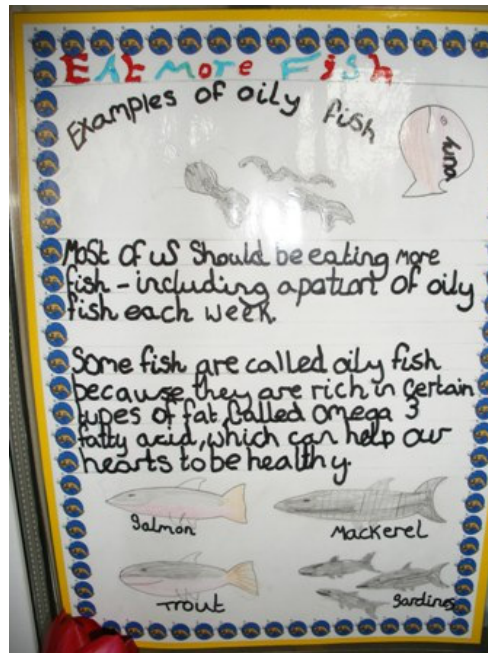 Eat more Fish
Examples of oily fish
tuna
Most of us should be eating more
fish - including a patiort of oily
fish each week.
Some fish are called oily fish
because they are rich in certain
types of fat, called omega 3
fatty acid, which can help our
hearts to be healthy.
Salmon
Mackerel
Trout
Sardines